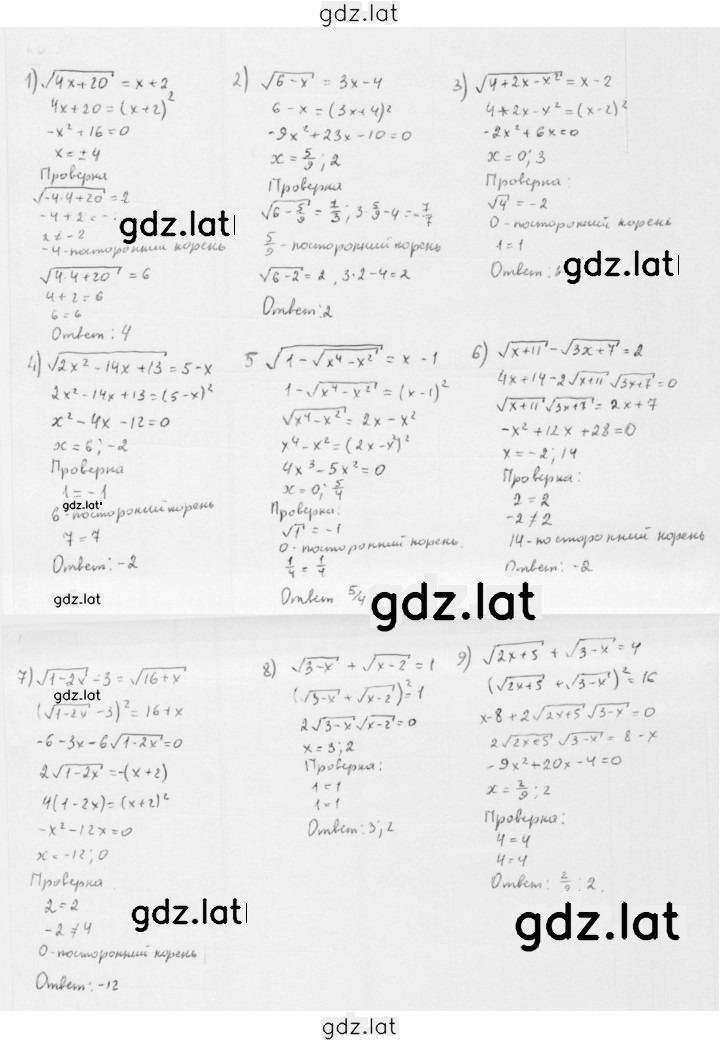 gdz.lat
1) √(4x+20) = x+2
4x+20 = (x+2)²
-x²+16=0
x=±4
Проверка
√(-4·4+20) = 2
-4+2=-
x≠-2
-4-посторонний корень
√(4·4+20) = 6
4+2=6
6=6
Ответ: 4
2) √(6-x) = 3x-4
6-x=(3x+4)²
-9x²+23x-10=0
x=5/9; 2
Проверка
√(6-5/9) = 7/3; 3·5/9-4=-7/7
5/9-посторонний корень
√(6-2) = 2, 3·2-4=2
Ответ: 2
3) √(4+2x-x²) = x-2
4+2x-x²=(x-2)²
-2x²+6x=0
x=0; 3
Проверка:
√4 = -2
0-посторонний корень
1=1
Ответ:
gdz.lat
gdz.lat
4) √(2x²-14x+13) = 5-x
2x²-14x+13=(5-x)²
x²-4x-12=0
x=6; -2
Проверка
1=-1
gdz.lat
6-посторонний корень
7=7
Ответ: -2
gdz.lat
5 √(1-√(x⁴-x²)) = x-1
1-√(x⁴-x²) = (x-1)²
√(x⁴-x²) = 2x-x²
x⁴-x²=(2x-x²)²
4x³-5x²=0
x=0; 5/4
Проверка:
√1 = -1
0-посторонний корень.
1/4 = 1/4
Ответ 5/4
gdz.lat
6) √(x+11) - √(3x+7) = 2
4x+14-2√(x+11) √(3x+7) = 0
√(x+11) √(3x+7) = 2x+7
-x²+12x+28=0
x=-2; 14
Проверка:
2=2
-2≠2
14-посторонний корень
Ответ: -2
7) √(1-2x) - 3 = √(16+x)
gdz.lat
(√(1-2x) - 3)² = 16+x
-6-3x-6√(1-2x) = 0
2√(1-2x) = -(x+2)
4(1-2x)=(x+2)²
-x²-12x=0
x=-12; 0
Проверка.
2=2
-2≠4
0-посторонний корень
Ответ: -12
gdz.lat
8) √(3-x) + √(x-2) = 1
(√(3-x) + √(x-2))² = 1
2√(3-x) √(x-2) = 0
x=3; 2
Проверка:
1=1
1=1
Ответ: 3; 2
9) √(2x+5) + √(3-x) = 4
(√(2x+5) + √(3-x))² = 16
x-8+2√(2x+5) √(3-x) = 0
2√(2x+5) √(3-x) = 8-x
-9x²+20x-4=0
x=2/9; 2
Проверка:
4=4
4=4
Ответ: 2/9; 2.
gdz.lat
gdz.lat